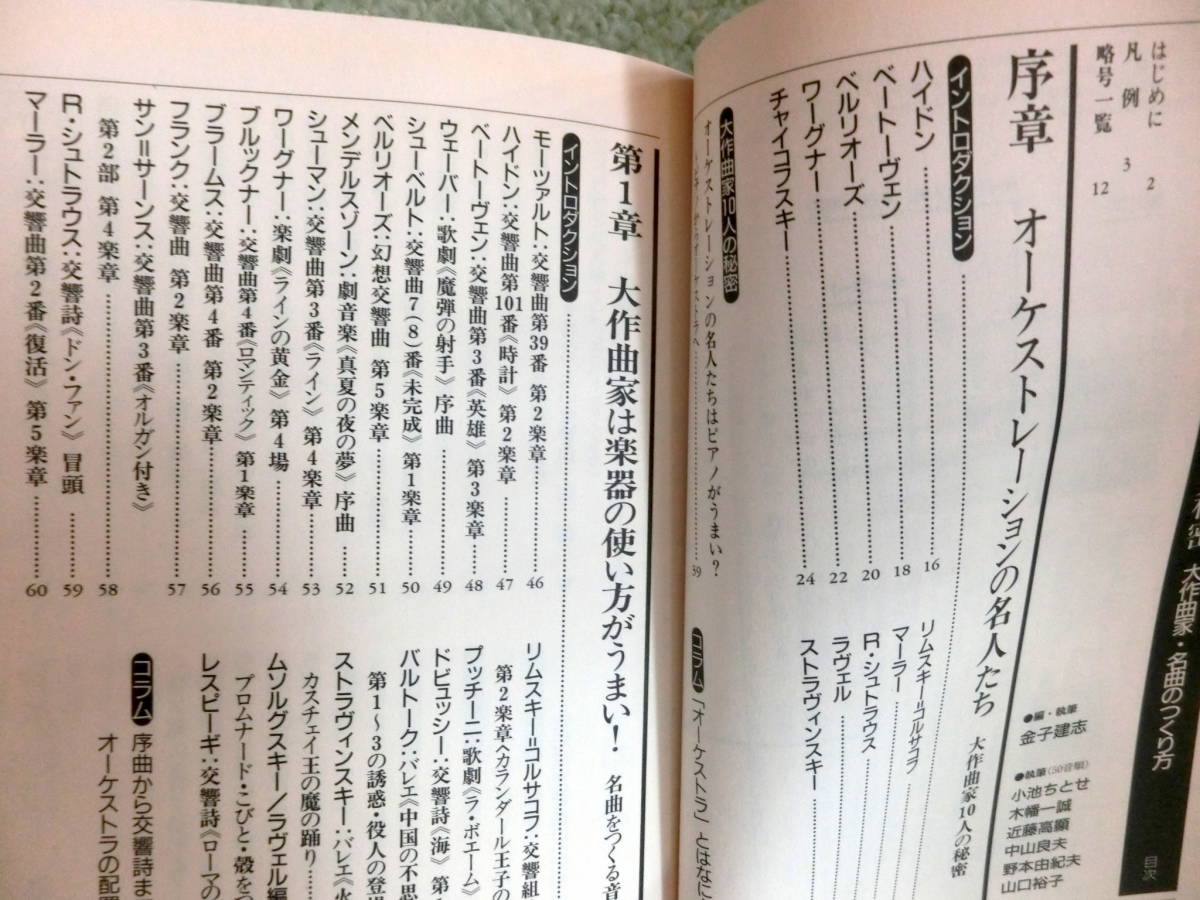 大作曲家・名曲のつくり方
目次
●編・執筆
金子建志
●執筆(50音順)
小池ちとせ
木幡一誠
近藤高顯
中山良夫
野本由紀夫
山口裕子
はじめに 2
凡例 3
略号一覧 12
序章 オーケストレーションの名人たち 大作曲家10人の秘密
イントロダクション
ハイドン 16
ベートーヴェン 18
ベルリオーズ 20
ワーグナー 22
チャイコフスキー 24
リムスキー=コルサコフ
マーラー
R・シュトラウス
ラヴェル
ストラヴィンスキー
大作曲家10人の秘密
オーケストレーションの名人たちはピアノがうまい? 39
コラム 「オーケストラ」とはなに
第1章 大作曲家は楽器の使い方がうまい! 名曲をつくる音
イントロダクション
モーツァルト:交響曲第39番 第2楽章 46
ハイドン:交響曲第101番《時計》 第2楽章 47
ベートーヴェン:交響曲第3番《英雄》 第3楽章 48
ウェーバー:歌劇《魔弾の射手》序曲 49
シューベルト:交響曲7(8)番《未完成》 第1楽章 50
ベルリオーズ:幻想交響曲 第5楽章 51
メンデルスゾーン:劇音楽《真夏の夜の夢》序曲 52
シューマン:交響曲第3番《ライン》 第4楽章 53
ワーグナー:楽劇《ラインの黄金》 第4場 54
ブルックナー:交響曲第4番《ロマンティック》 第1楽章 55
ブラームス:交響曲第4番 第2楽章 56
フランク:交響曲 第2楽章 57
サン=サーンス:交響曲第3番《オルガン付き》
第2部 第4楽章 58
R・シュトラウス:交響詩《ドン・ファン》冒頭 59
マーラー:交響曲第2番《復活》 第5楽章 60
リムスキー=コルサコフ:交響組
第2楽章〈カランダール王子の
プッチーニ:歌劇《ラ・ボエーム》
ドビュッシー:交響詩《海》 第
バルトーク:バレエ《中国の不思
第1〜3の誘惑・役人の登場
ストラヴィンスキー:バレエ《火
カスチェイ王の魔の踊り
ムソルグスキー/ラヴェル編
プロムナード・こびと・殻をつ
レスピーギ:交響詩《ローマの
コラム 序曲から交響詩ま
オーケストラの配置